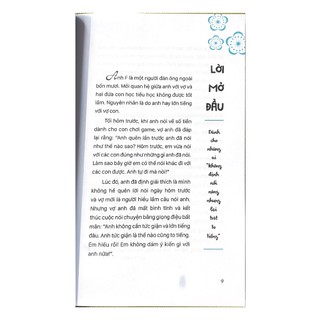 LỜI
MỞ
ĐẦU
Dành
cho
những
ai
"không
định
nổi
nóng
nhưng
lại
trót
to
tiếng"
Anh F là một người đàn ông ngoài
bốn mươi. Mối quan hệ giữa anh với vợ và
hai đứa con học tiểu học không được tốt
lắm. Nguyên nhân là do anh hay lớn tiếng
với vợ con.
Tối hôm trước, khi anh nói về số tiền
dành cho con chơi game, vợ anh đã đáp
lại rằng: "Anh quên lần trước anh đã nói
như thế nào sao? Hôm trước, em vừa nói
với các con đúng như những gì anh đã nói.
Làm sao bây giờ em có thể nói khác được.
Anh tự đi mà nói!"
Lúc đó, anh đã định giải thích là mình
không hề quên lời nói ngày hôm trước
và vợ mới là người hiểu lầm câu nói của
anh. Nhưng vợ anh đã mất bình tĩnh và kết
thúc cuộc nói chuyện bằng giọng điệu bất
mãn: "Anh không cần tức giận và lớn tiếng
đâu. Anh tức giận là thế nào cũng to tiếng.
Em hiểu rồi! Em không dám ý kiến gì với
anh nữa!".
9